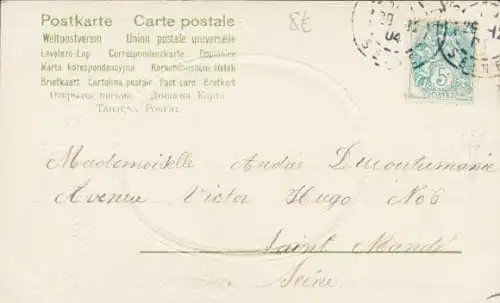 Postkarte Carte postale
8€
Weltpostverein Union postale universelle
Levelező-Lap Correspondenzkarte Dopisnice
Karta korespondencyjna Korrespondenzkarte
Briefkaart Cartolina postale Post card Brefkort
Открытое письмо. Дописна Карта
Tarjeta Postal
29
04
5
POSTES
Mademoiselle Andrée
Avenue Victor Hugo No 6
Saint Mandé
Seine